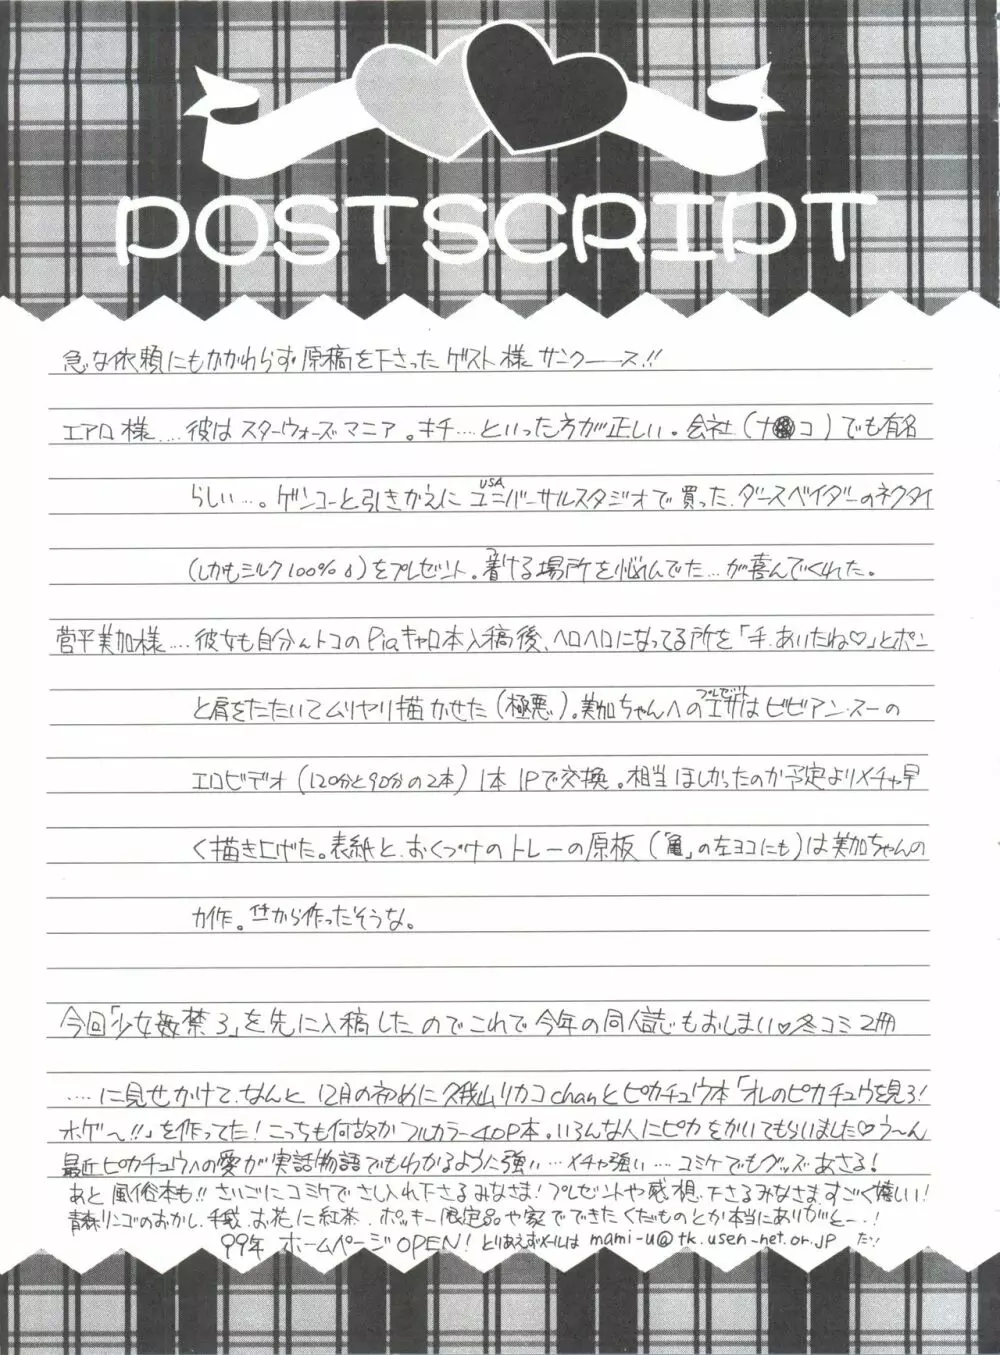 POSTSCRIPT
急な依頼にもかかわらず原稿を下さったゲスト様サンクーース!!
エアロ様....彼はスターウォーズマニア。キチ....といった方が正しい。会社(ナ コ)でも有名
らしい....。ゲンコーと引きかえにUSAユニバーサルスタジオで買った.ダースベイダーのネクタイ
(しかもミルク100%)をプレゼント。着ける場所を悩んでた...が喜んでくれた。
菅平美加様....彼女も自分んトコのPiaキャロ本入稿後、ヘロヘロになってる所を「手.あいたね♡」とポン
と肩をたたいてムリヤリ描かせた(極悪)。美加ちゃんへのエサ(プレゼント)はビビアン.スーの
エロビデオ(120分と90分の2本)1本1Pで交換。相当ほしかったのか予定よりメチャ早
く描き上げた。表紙と.おくづけのトレーの原板(「亀」の左ヨコにも)は美加ちゃんの
力作。から作ったそうな。
今回「少女姦禁3」を先に入稿したのでこれで今年の同人誌もおしまい♡冬コミ2冊
....に見せかけて.なんと12月の初めに久我山リカコchanとピカチュウ本「オレのピカチュウを見ろ!
ホゲ〜!!」を作ってた!こっちも何故かフルカラー40P本。いろんな人にピカをかいてもらいました♡う〜ん
最近ピカチュウへの愛が実話物語でもわかるように強い...メチャ強い...コミケでもグッズあさる!
あと風俗本も!!さいごにコミケでさし入れ下さるみなさま!プレゼントや感想.下さるみなさま.すごく嬉しい!
青森リンゴのおかし.手紙.お花に紅茶.ポッキー限定品や家でできたくだものとか本当にありがとー.!
99年 ホームページOPEN!とりあえずメールは mami-u@tk.usen-net.or.jp だッ!